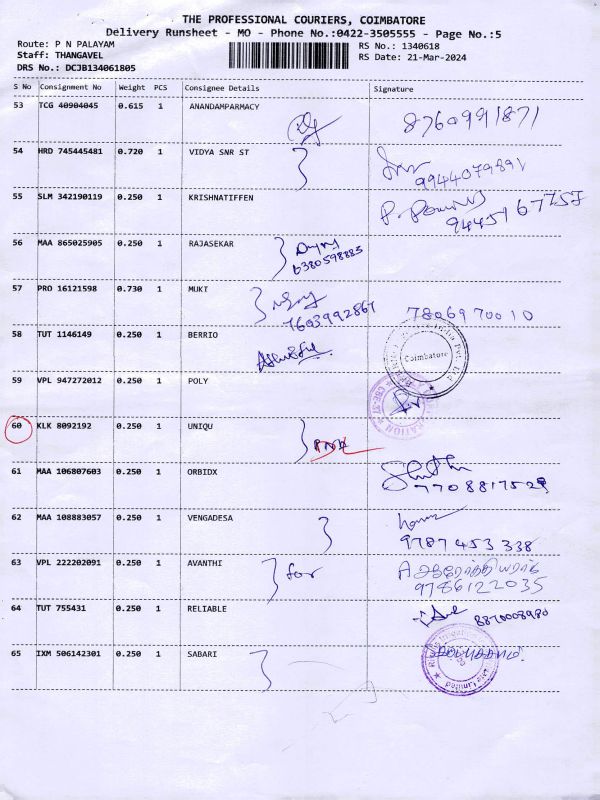 THE PROFESSIONAL COURIERS, COIMBATORE
Delivery Runsheet - MO - Phone No.:0422-3505555 - Page No.:5
Route: P N PALAYAM
RS No.: 1340618
Staff: THANGAVEL
RS Date: 21-Mar-2024
DRS No.: DCJB134061805
S No Consignment No Weight PCS Consignee Details Signature
53 TCG 40904045 0.615 1 ANANDAMPARMACY
8760991871
54 HRD 745445481 0.720 1 VIDYA SNR ST
9944079891
55 SLM 342190119 0.250 1 KRISHNATIFFEN
56 MAA 865025905 0.250 1 RAJASEKAR
6380598885
57 PRO 16121598 0.730 1 MUKI
7603992867
7806970010
58 TUT 1146149 0.250 1 BERRIO
Coimbatore
59 VPL 947272012 0.250 1 POLY
60 KLK 8092192 0.250 1 UNIQU
61 MAA 106807603 0.250 1 ORBIDX
7708817529
62 MAA 108883057 0.250 1 VENGADESA
9787453338
63 VPL 222202091 0.250 1 AVANTHI
for
9786122035
64 TUT 755431 0.250 1 RELIABLE
8870008980
65 IXM 506142301 0.250 1 SABARI